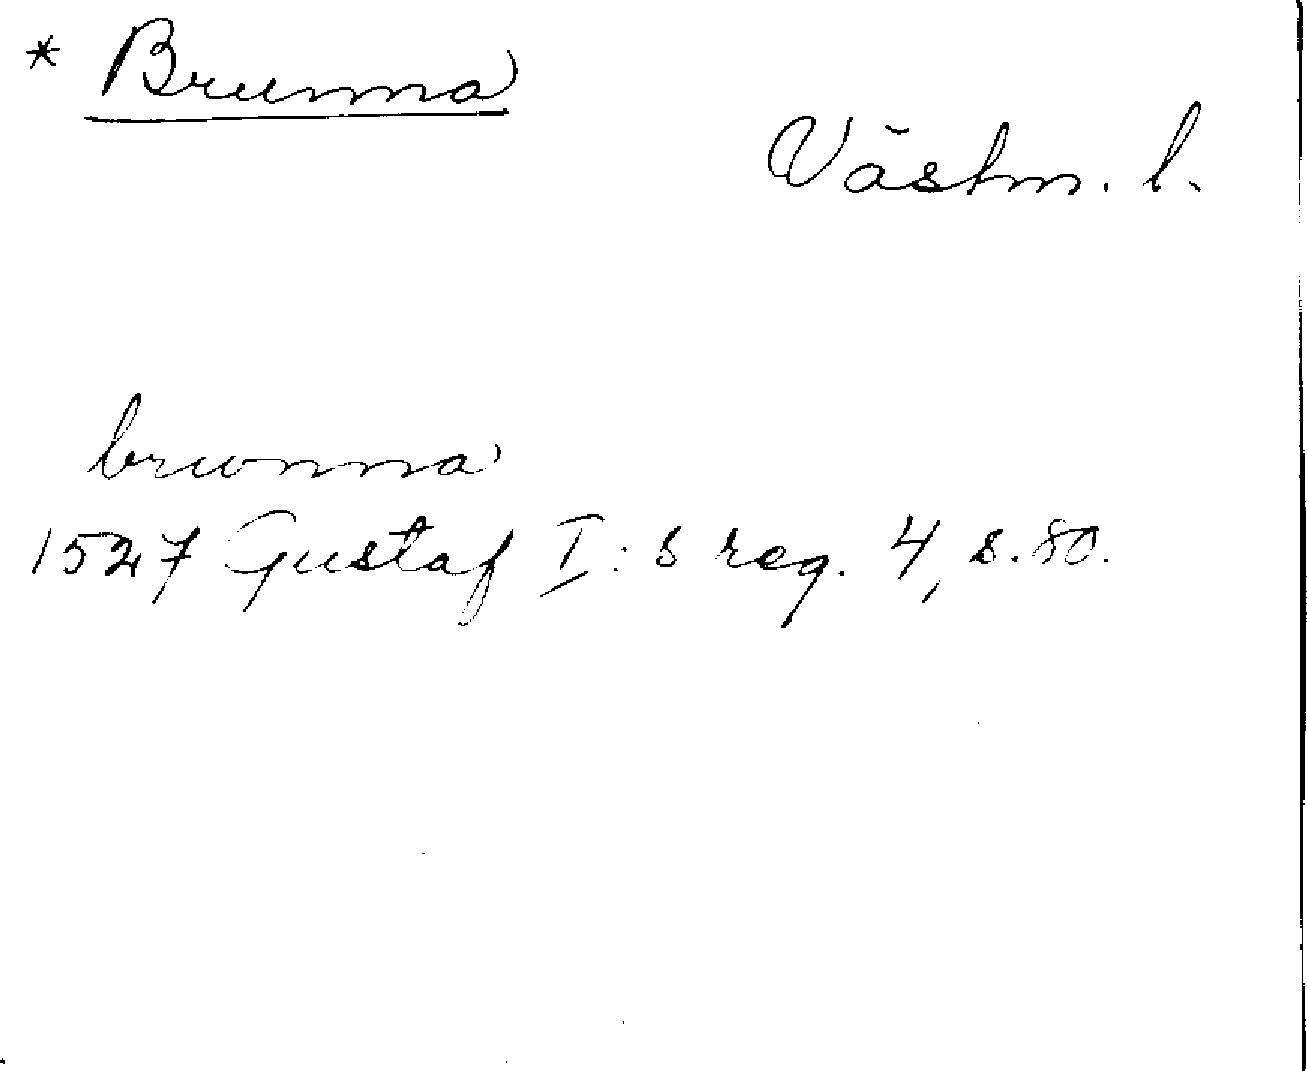 * Brunna
Västm. l.
brwnna
1527 Gustaf I: s reg. 4, s. 80.